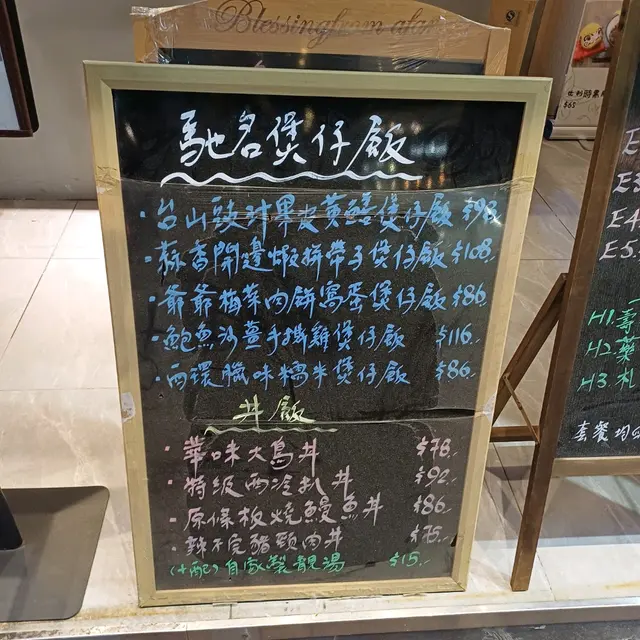 Blessing from
馳名煲仔飯
·台山豉汁果皮黃鱔煲仔飯 $98
·蒜香開邊蝦拼帶子煲仔飯 $108.-
·爺爺梅菜肉餅窩蛋煲仔飯 $86.
·鮑魚沙薑手撕雞煲仔飯 $116.-
·両環臘味糯米煲仔飯 $86.-
丼飯
·華味大鳥丼 $78.-
·特級西冷扒丼 $92.-
·原條板燒鰻魚丼 $86.-
·辣不完豬頸肉丼 $75.-
(+配) 自家製靚湯 $15.-
E5.
H1.壽
H2.葉
H3.札
套餐均